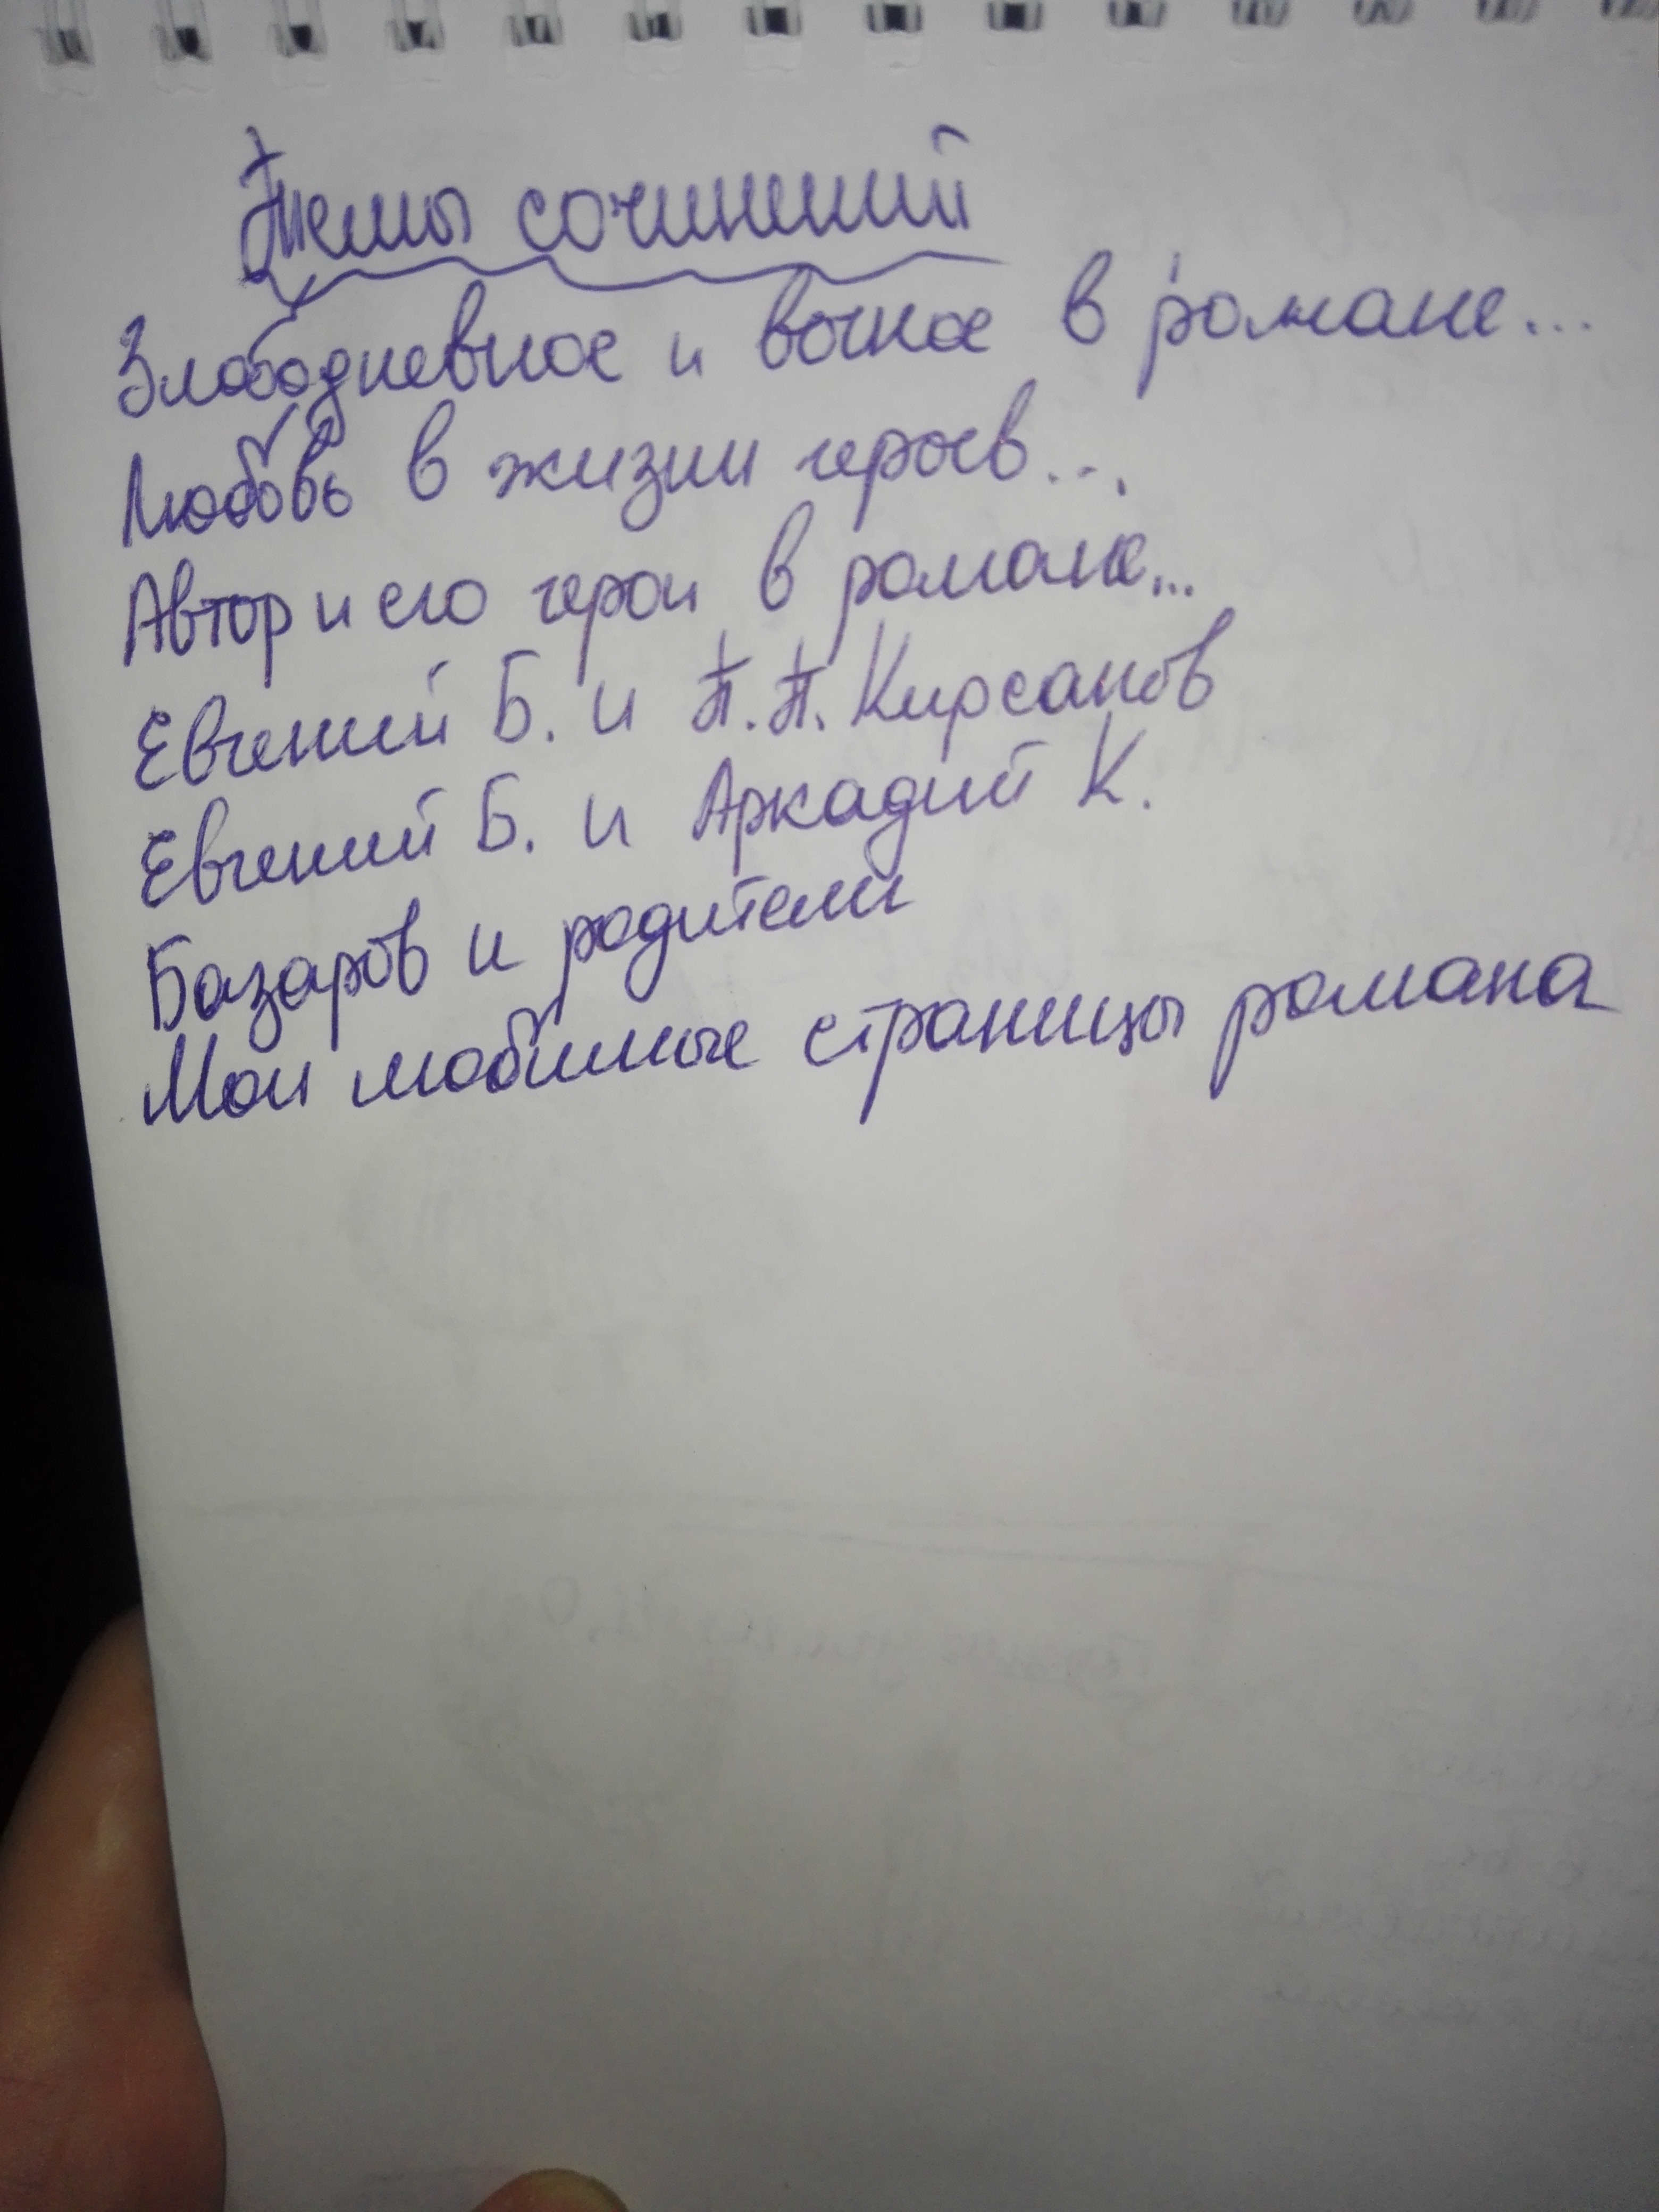 Темы сочинений
Злободневное и вечное в романе...
Любовь в жизни героев...
Автор и его герои в романе...
Евгений Б. и П.П. Кирсанов
Евгений Б. и Аркадий К.
Базаров и родители
Мои любимые страницы романа